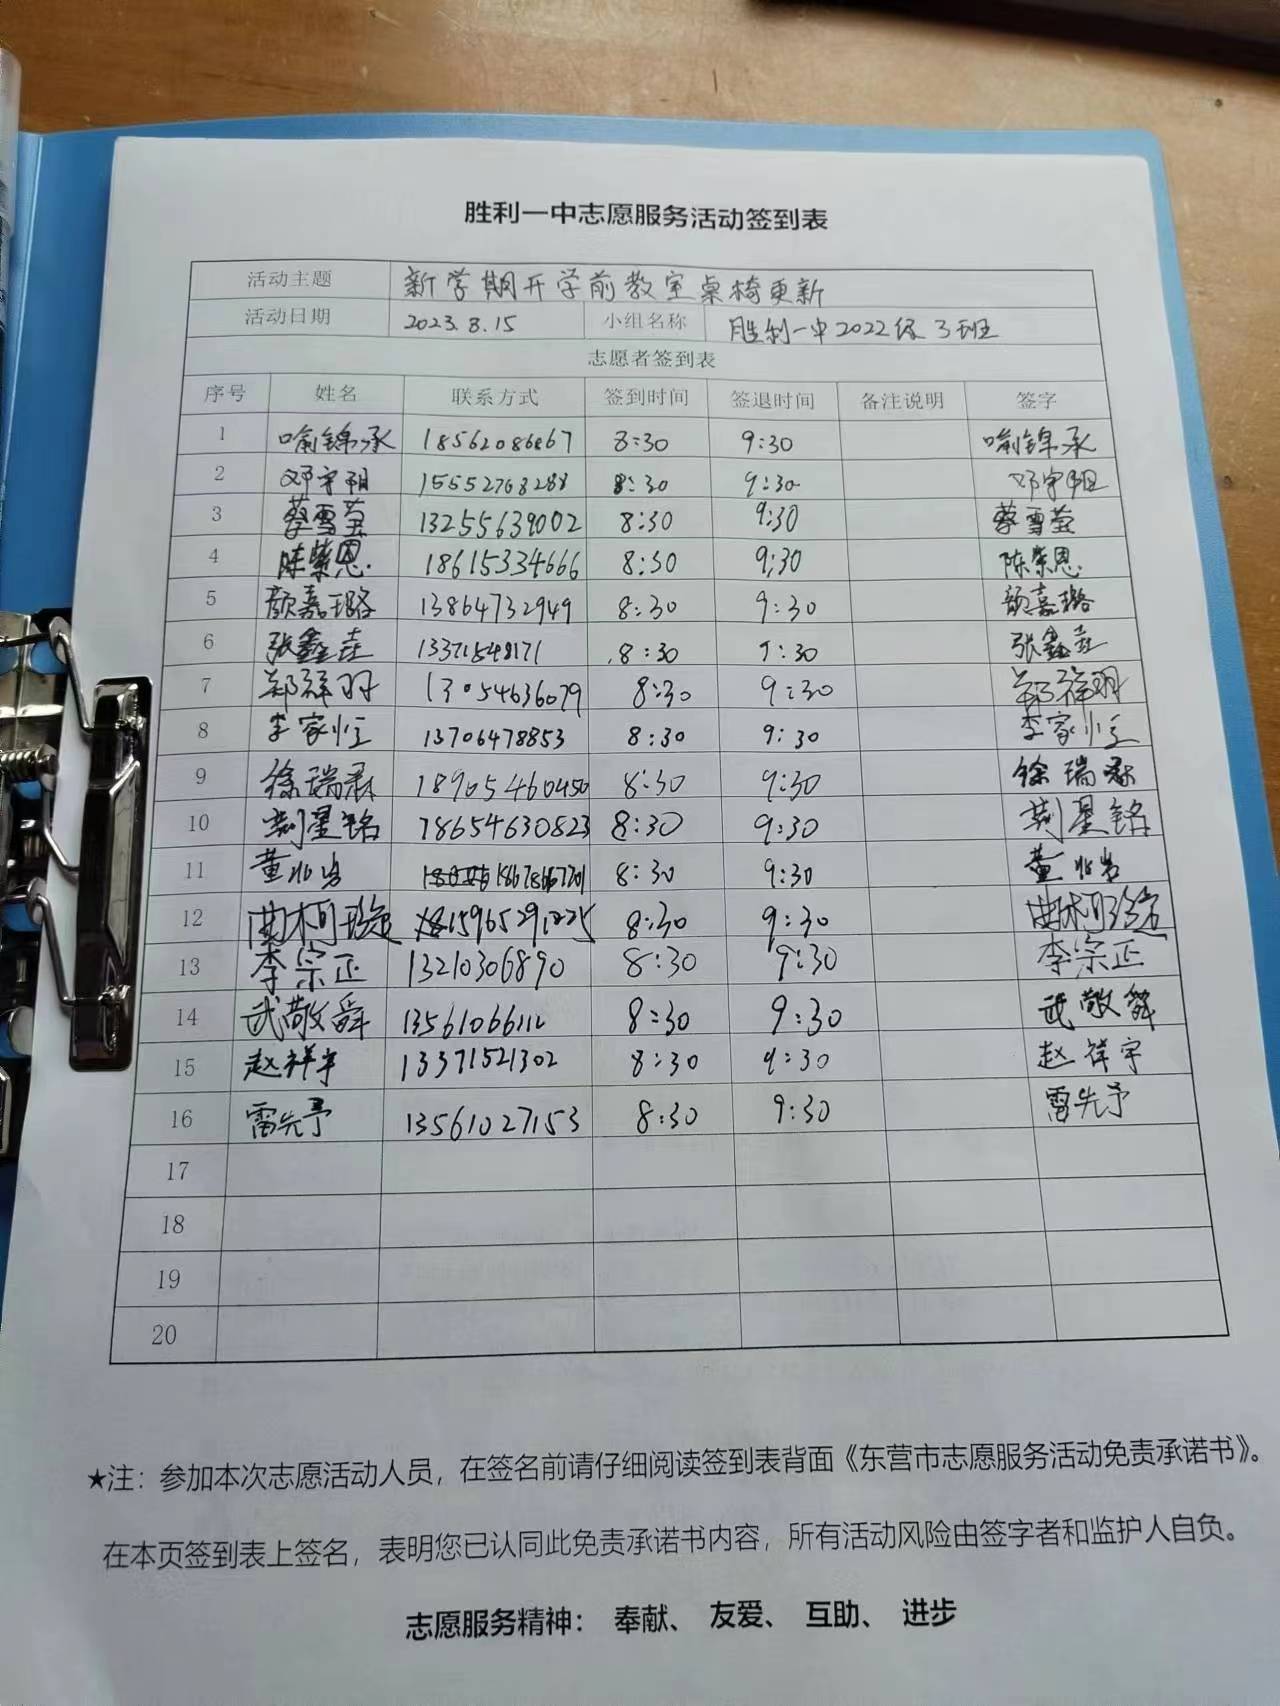 胜利一中志愿服务活动签到表
活动主题 新学期开学前教室桌椅更新
活动日期 2023.8.15 小组名称 胜利一中2022级3班
志愿者签到表
序号 姓名 联系方式 签到时间 签退时间 备注说明 签字
1 喻锦承 18562086867 8:30 9:30 喻锦承
2 邓宇阳 15552768288 8:30 9:30 邓宇阳
3 蔡雪莹 13255639002 8:30 9:30 蔡雪莹
4 陈紫恩 18615334666 8:30 9:30 陈紫恩
5 颜嘉璐 13864732949 8:30 9:30 颜嘉璐
6 张鑫垚 13371548171 8:30 9:30 张鑫垚
7 郑祥羽 13054636079 8:30 9:30 郑祥羽
8 李家恒 13706478853 8:30 9:30 李家恒
9 徐瑞 18905460450 8:30 9:30 徐瑞
10 荆星铭 18654630823 8:30 9:30 荆星铭
11 董兆岩 8:30 9:30 董兆岩
12 曲柯 15965291225 8:30 9:30 曲柯
13 李宗正 13210306890 8:30 9:30 李宗正
14 武敬舜 13561066112 8:30 9:30 武敬舜
15 赵祥宇 13371521302 8:30 9:30 赵祥宇
16 雷先予 13561027153 8:30 9:30 雷先予
17
18
19
20
★注：参加本次志愿活动人员，在签名前请仔细阅读签到表背面《东营市志愿服务活动免责承诺书》。
在本页签到表上签名，表明您已认同此免责承诺书内容，所有活动风险由签字者和监护人自负。
志愿服务精神： 奉献、 友爱、 互助、 进步